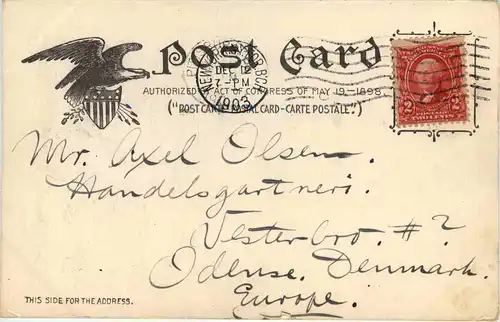 Post Card
DEC 12
7-PM
1903
AUTHORIZED ACT OF CONGRESS OF MAY 19-1898
("POST CARD-POSTAL CARD-CARTE POSTALE".)
2 2
TWO CENTS
Mr. Axel Olsen.
Handelsgartneri.
Vesterbro. #?
Odense. Denmark.
Europe.
THIS SIDE FOR THE ADDRESS.